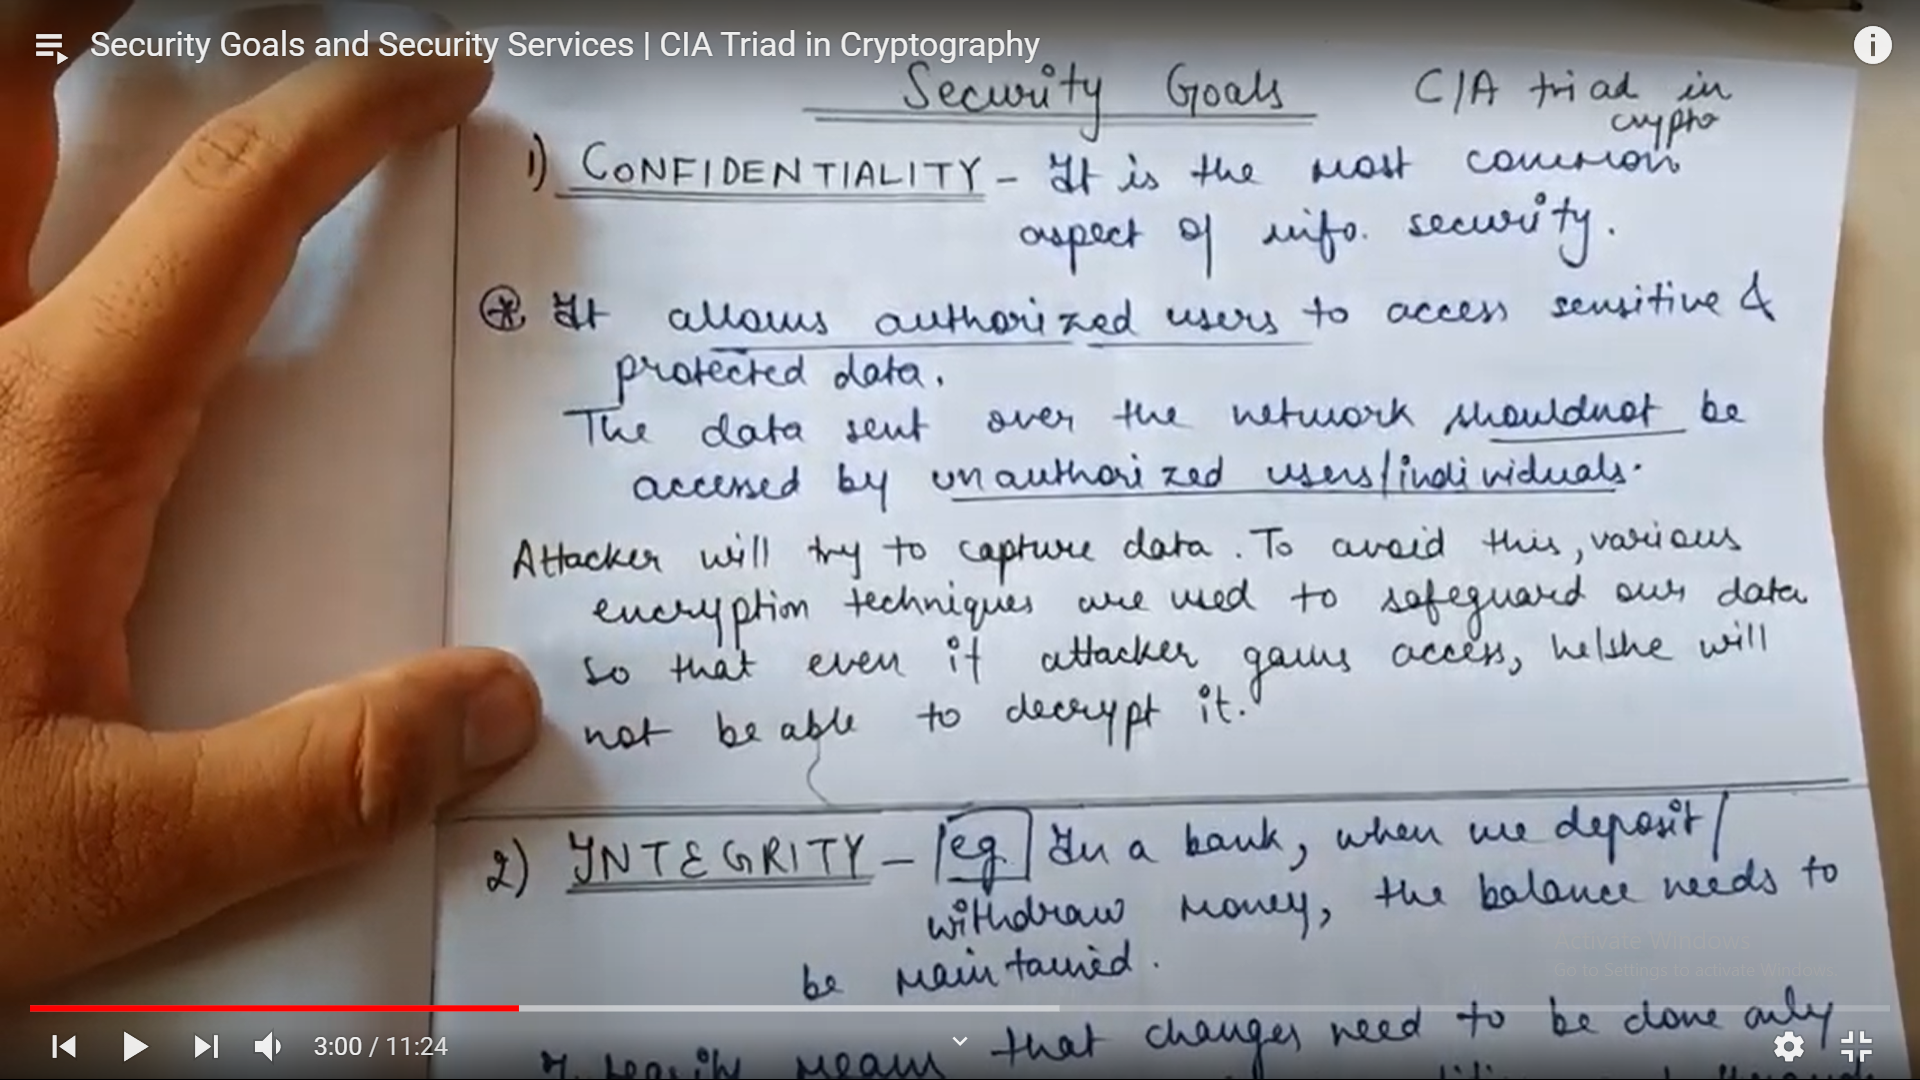 Security Goals and Security Services | CIA Triad in Cryptography
Security Goals CIA triad in
crypto
1) CONFIDENTIALITY - It is the most common
aspect of info. security.
* It allows authorized users to access sensitive &
protected data.
The data sent over the network shouldnot be
accessed by unauthorized users/individuals.
Attacker will try to capture data. To avoid this, various
encryption techniques are used to safeguard our data
so that even if attacker gains access, he/she will
not be able to decrypt it.
2) INTEGRITY - eg In a bank, when we deposit/
withdraw money, the balance needs to
be maintained.
Activate Windows
Go to Settings to activate Windows.
means that changes need to be done only
3:00 / 11:24